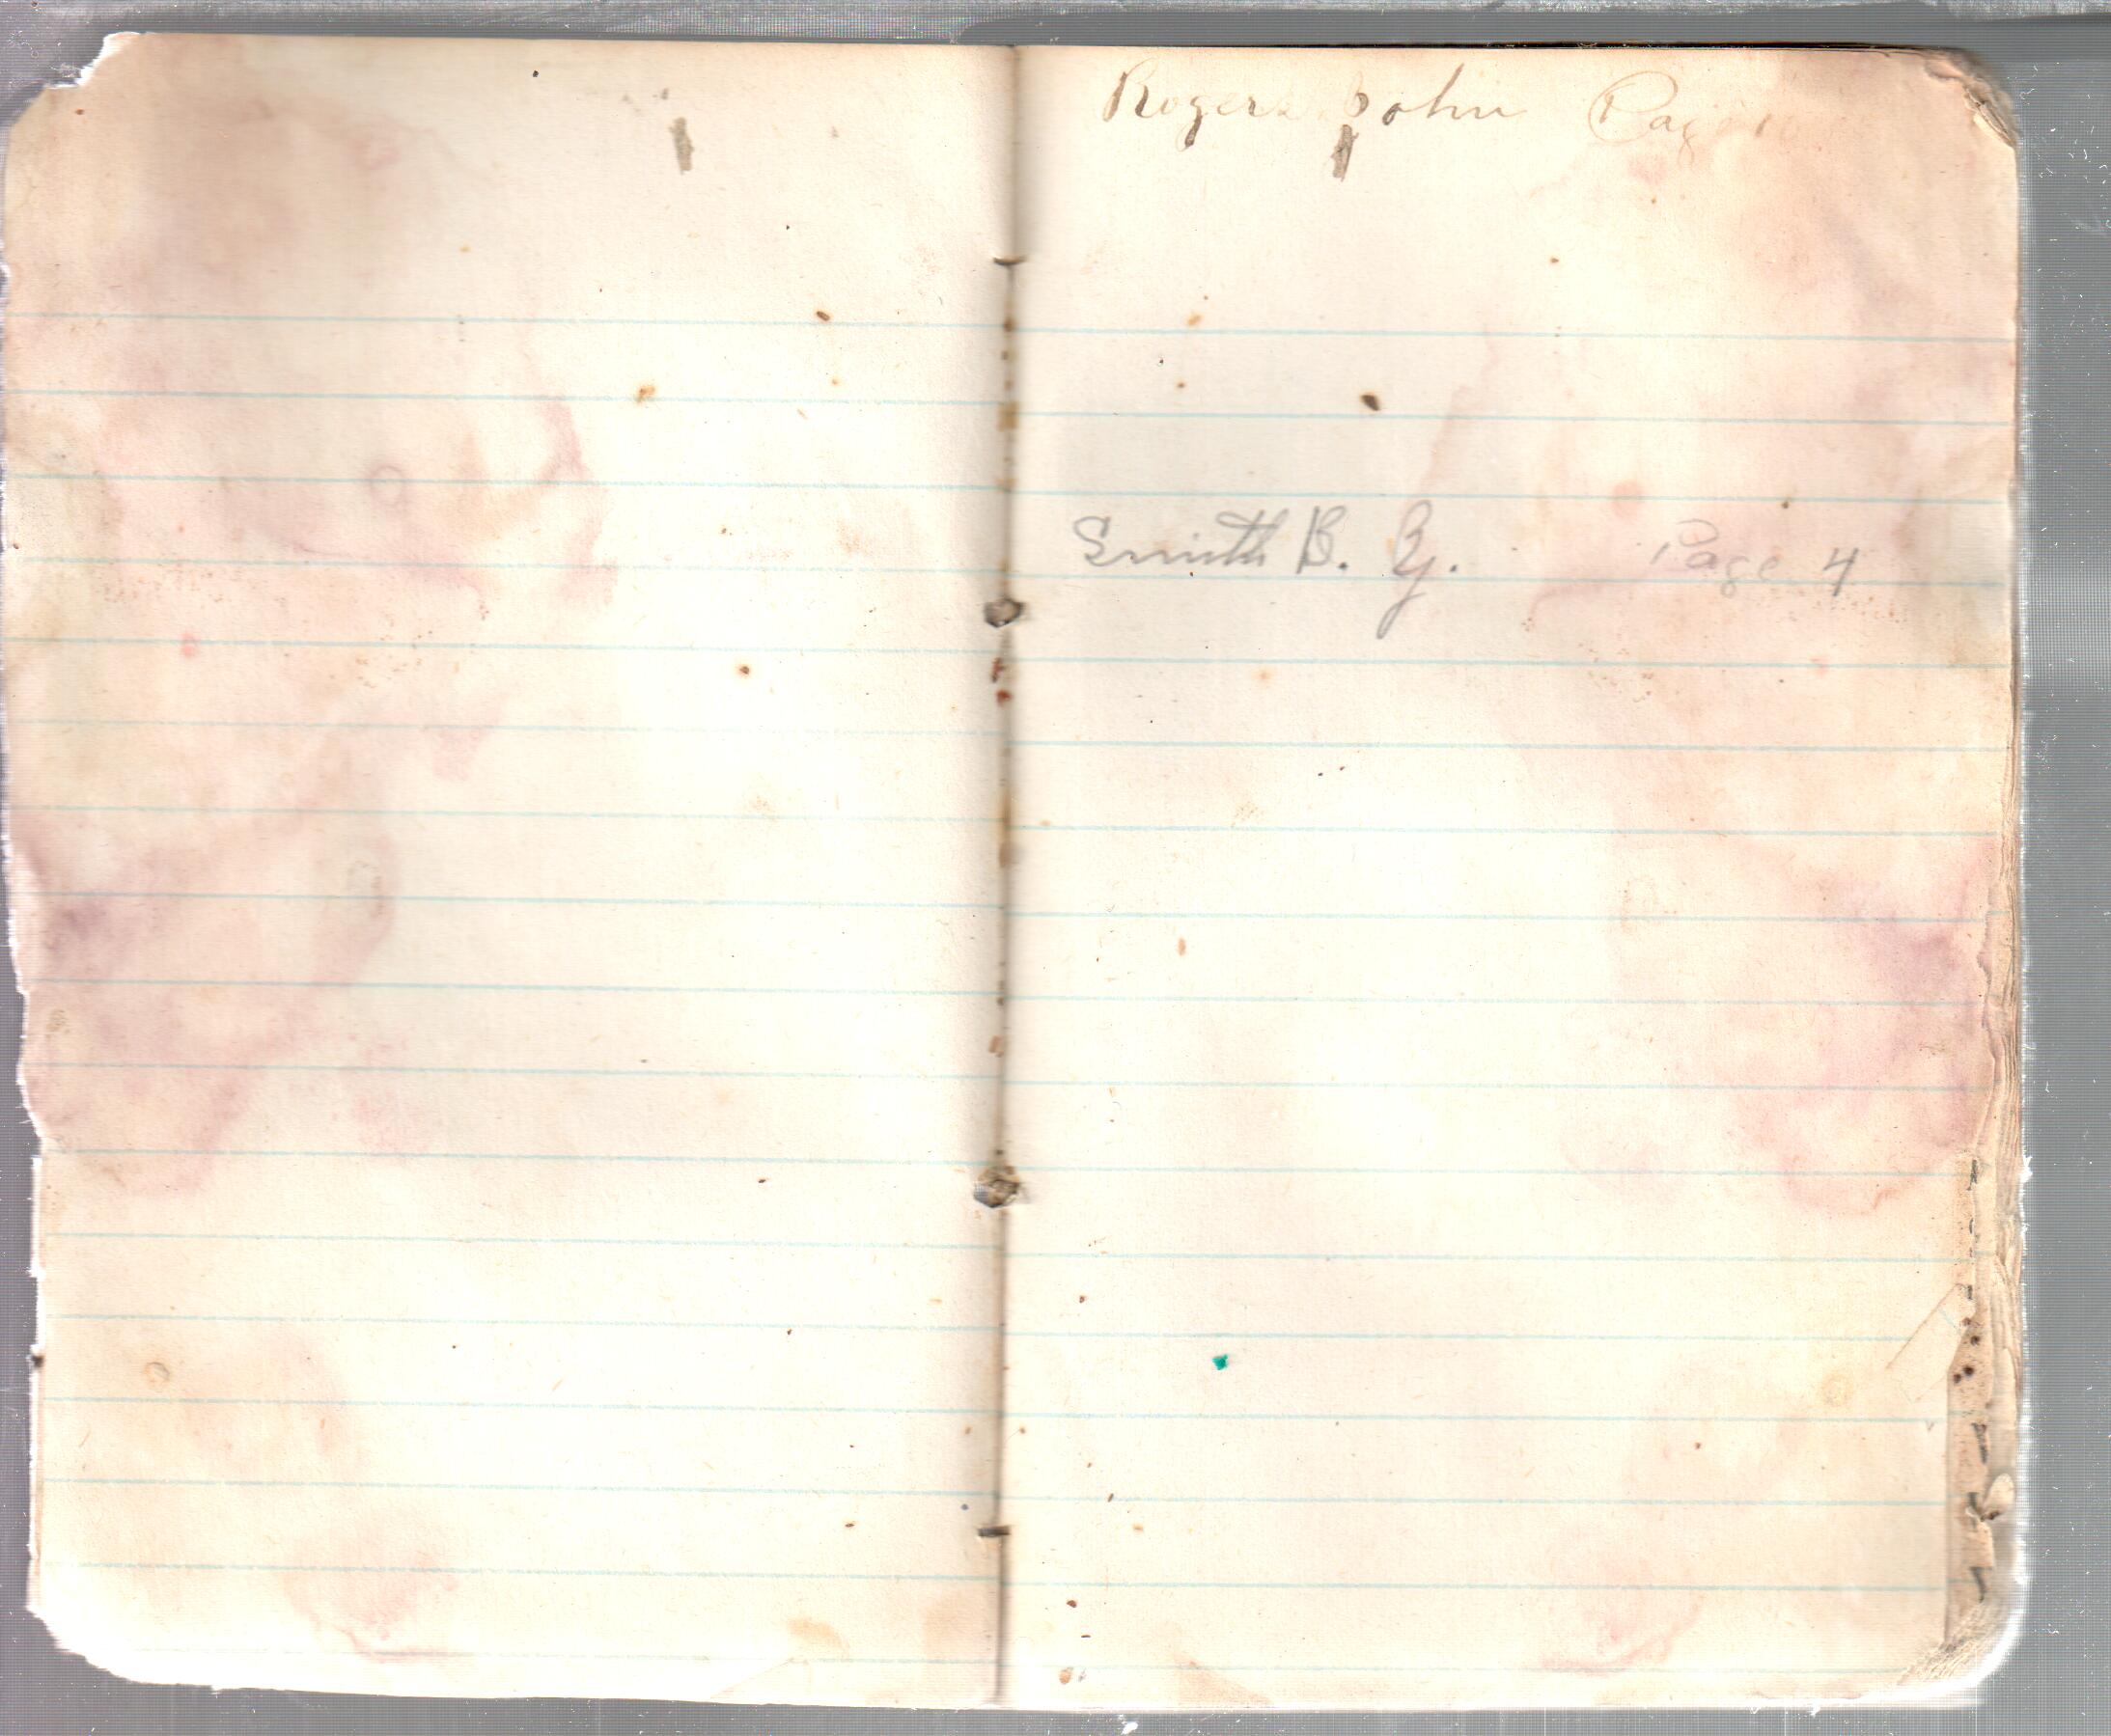 Rogers John Page 10
Smith B. Y. Page 4